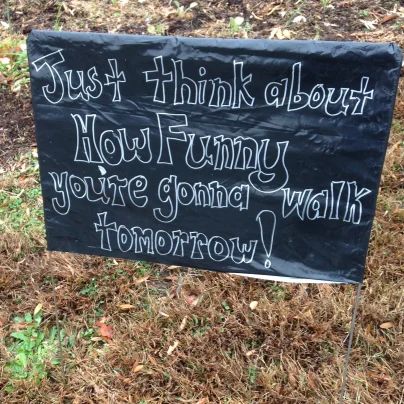 Just think about
How Funny
you're gonna walk
tomorrow!